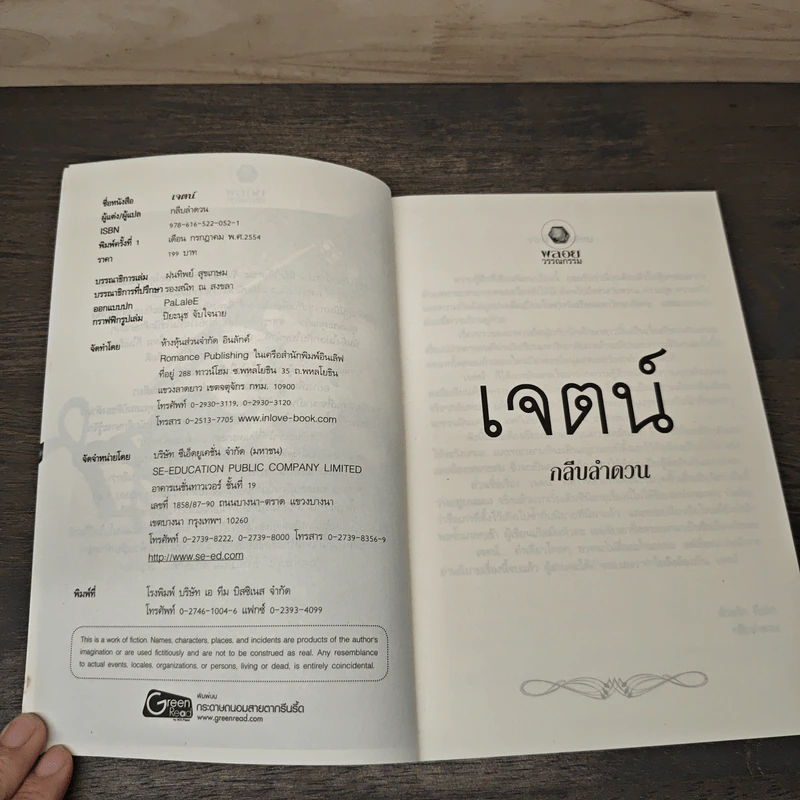 ชื่อหนังสือ เจตน์
ผู้แต่ง/ผู้แปล กลีบลำดวน
ISBN 978-616-522-052-1
พิมพ์ครั้งที่ 1 เดือน กรกฎาคม พ.ศ.2554
ราคา 199 บาท
บรรณาธิการเล่ม ฝนทิพย์ สุขเกษม
บรรณาธิการที่ปรึกษา รองสนิท ณ สงขลา
ออกแบบปก PaLaleE
กราฟฟิกรูปเล่ม ปิยะนุช จับใจนาย
จัดทำโดย ห้างหุ้นส่วนจำกัด อินลัคก์
Romance Publishing ในเครือสำนักพิมพ์อินเลิฟ
ที่อยู่ 288 ทาวน์โฮม ซ.พหลโยธิน 35 ถ.พหลโยธิน
แขวงลาดยาว เขตจตุจักร กทม. 10900
โทรศัพท์ 0-2930-3119, 0-2930-3120
โทรสาร 0-2513-7705 www.inlove-book.com
จัดจำหน่ายโดย บริษัท ซีเอ็ดยูเคชั่น จำกัด (มหาชน)
SE-EDUCATION PUBLIC COMPANY LIMITED
อาคารเนชั่นทาวเวอร์ ชั้นที่ 19
เลขที่ 1858/87-90 ถนนบางนา-ตราด แขวงบางนา
เขตบางนา กรุงเทพฯ 10260
โทรศัพท์ 0-2739-8222, 0-2739-8000 โทรสาร 0-2739-8356-9
http://www.se-ed.com
พิมพ์ที่ โรงพิมพ์ บริษัท เอ ทีม บิสซิเนส จำกัด
โทรศัพท์ 0-2746-1004-6 แฟกซ์ 0-2393-4099
This is a work of fiction. Names, characters, places, and incidents are products of the author's
imagination or are used fictitiously and are not to be construed as real. Any resemblance
to actual events, locales, organizations, or persons, living or dead, is entirely coincidental.
Green Read
พิมพ์บน
กระดาษถนอมสายตากรีนรี้ด
www.greenread.com
พลอย
วรรณกรรม
เจตน์
กลีบลำดวน